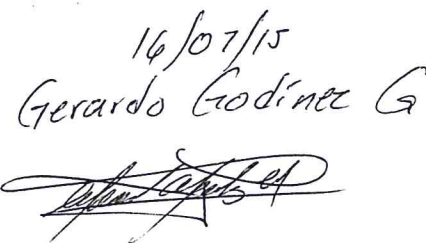 16/07/15
Gerardo Godínez G